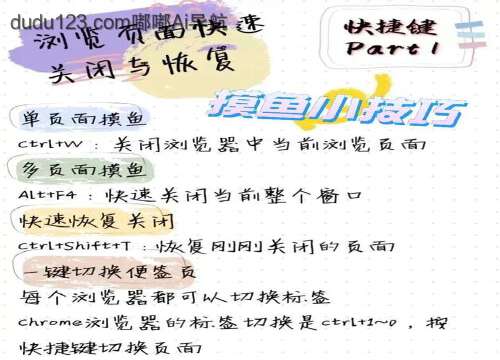 dudu123.com嘟嘟Ai导航
浏览页面快速
关闭与恢复
快捷键
Part1
摸鱼小技巧
单页面摸鱼
Ctrl+W：关闭浏览器中当前浏览页面
多页面摸鱼
Alt+F4：快速关闭当前整个窗口
快速恢复关闭
Ctrl+Shift+T：恢复刚刚关闭的页面
一键切换便签页
每个浏览器都可以切换标签
Chrome浏览器的标签切换是ctrl+1~0，按
快捷键切换页面